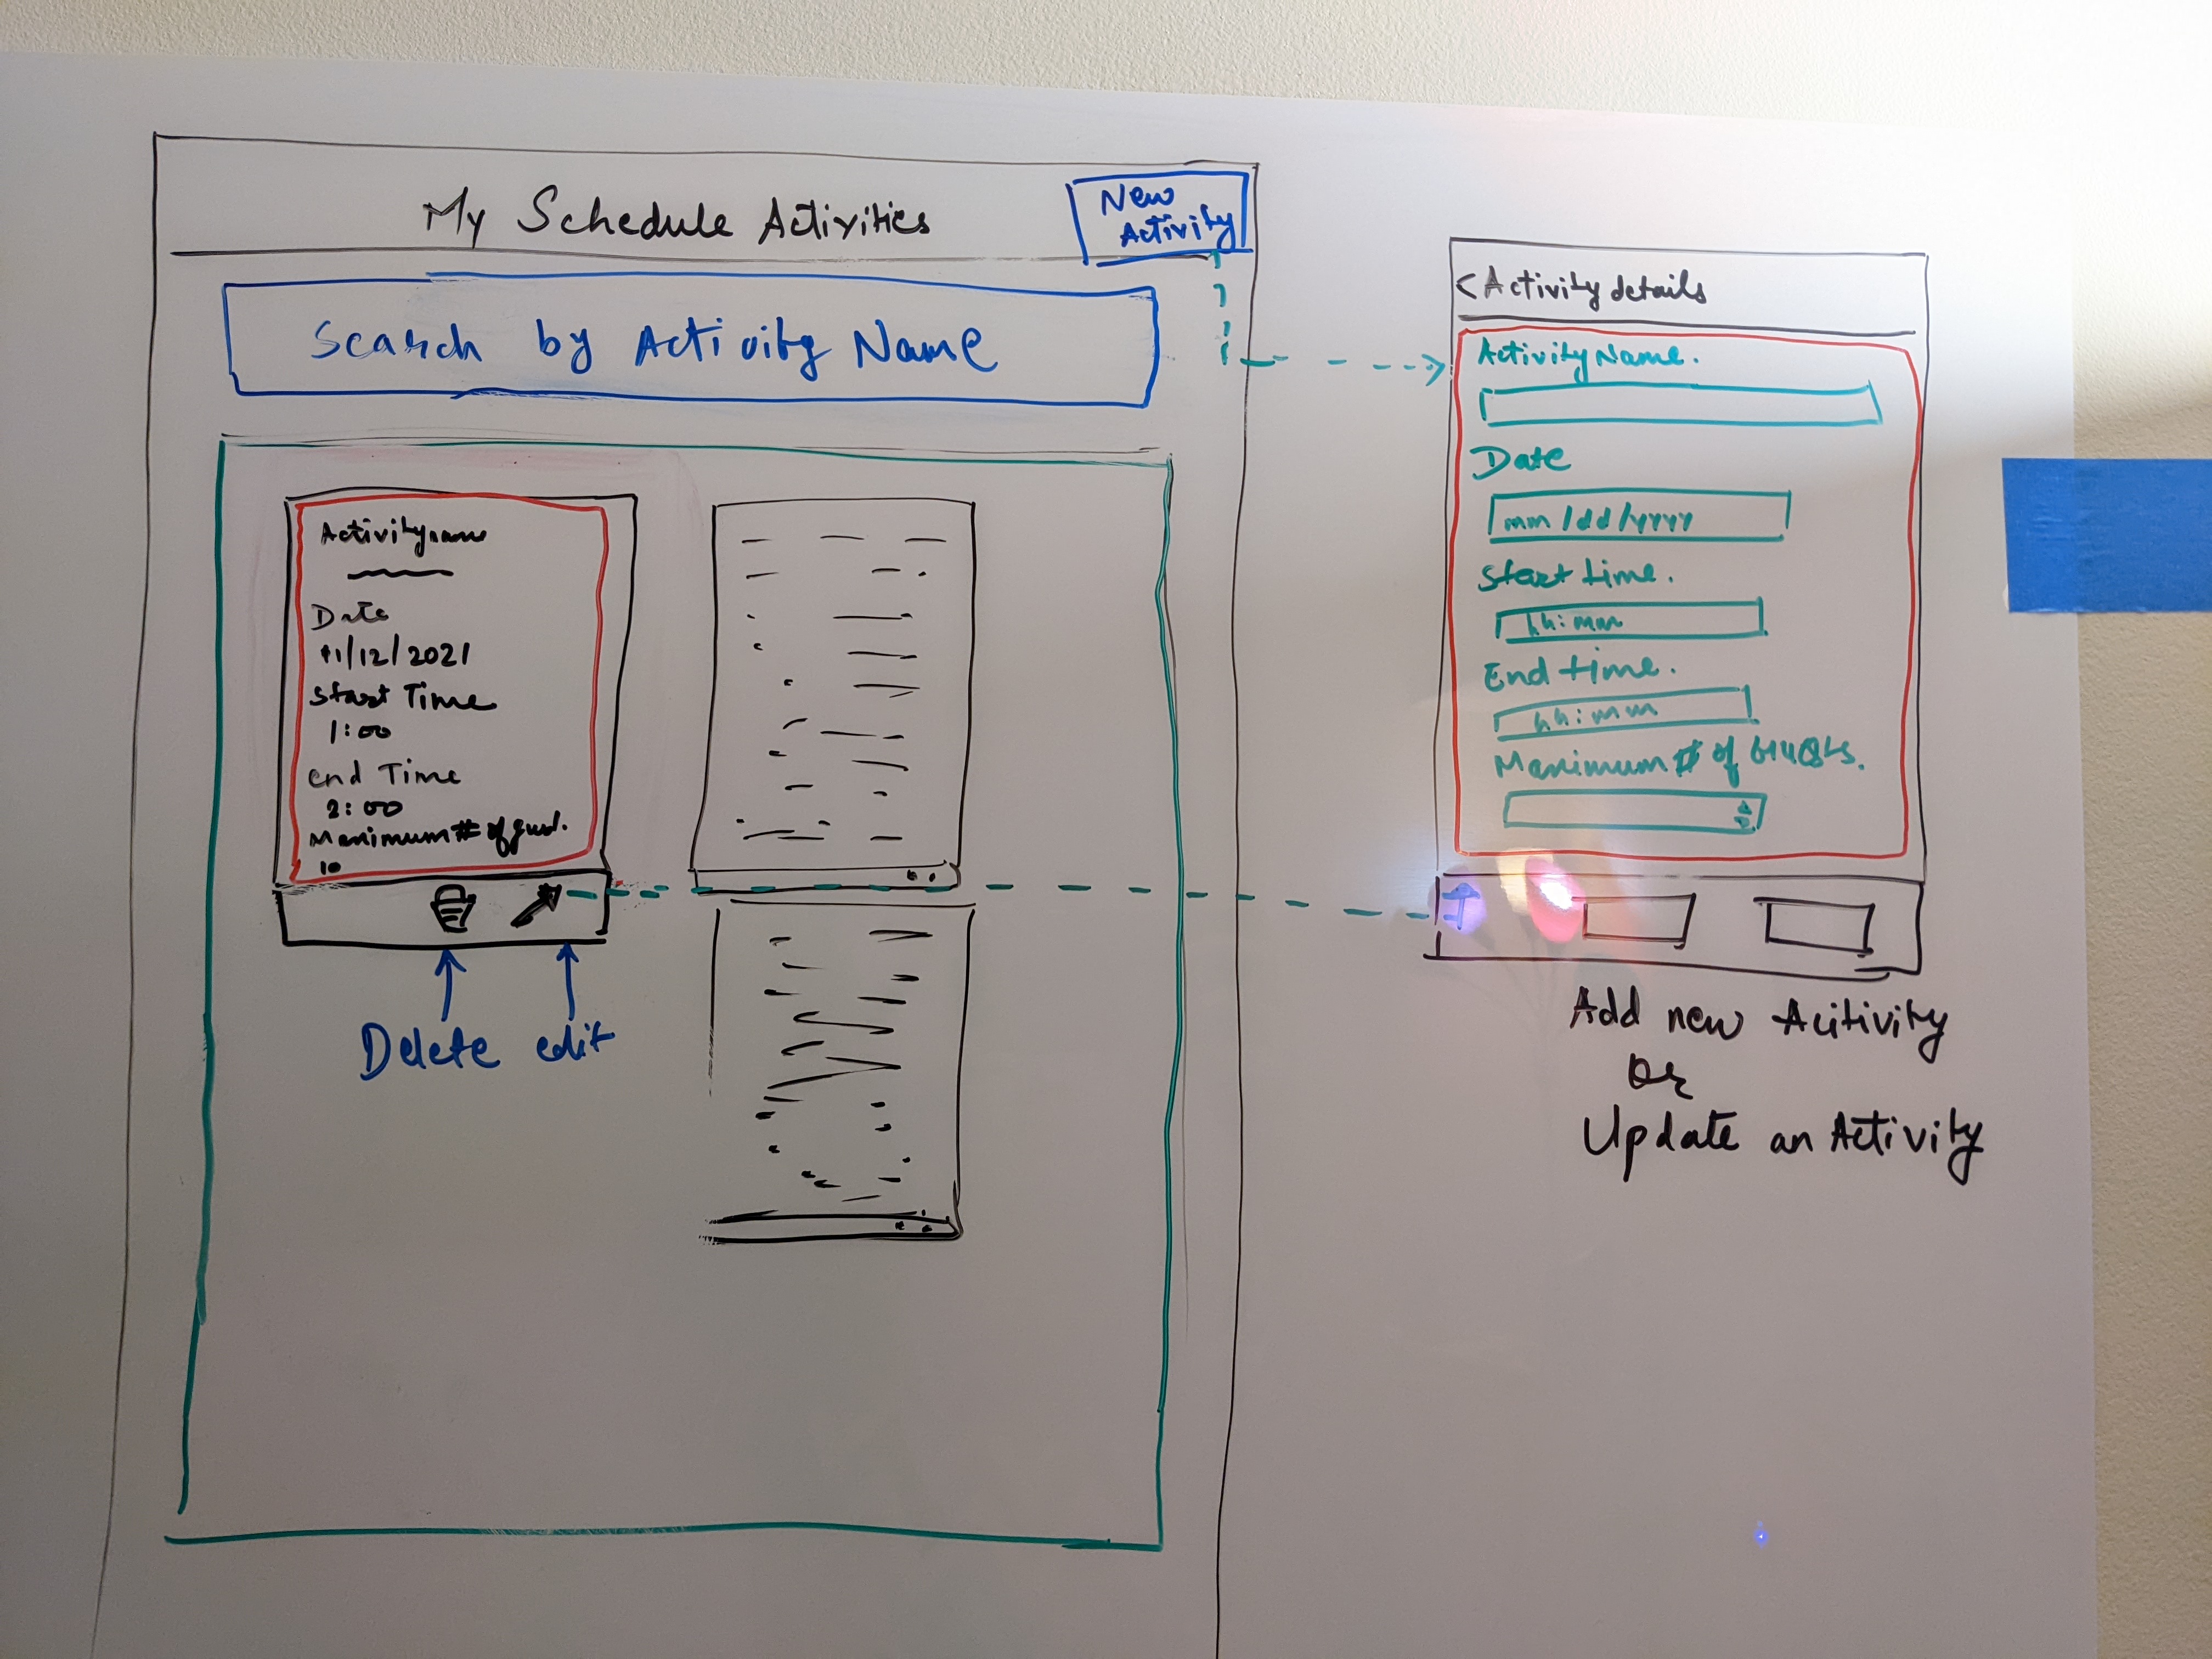 My Schedule Activities
New
Activity
Search by Activity Name
Activityname
Date
11/12/2021
Start Time
1:00
End Time
2:00
Maximum # of
10
Delete edit
< Activity details
Activity Name.
Date
mm/dd/yyyy
Start time.
hh:mm
End time.
hh:mm
Maximum # of
Add new Acitivity
Or
Update an Activity